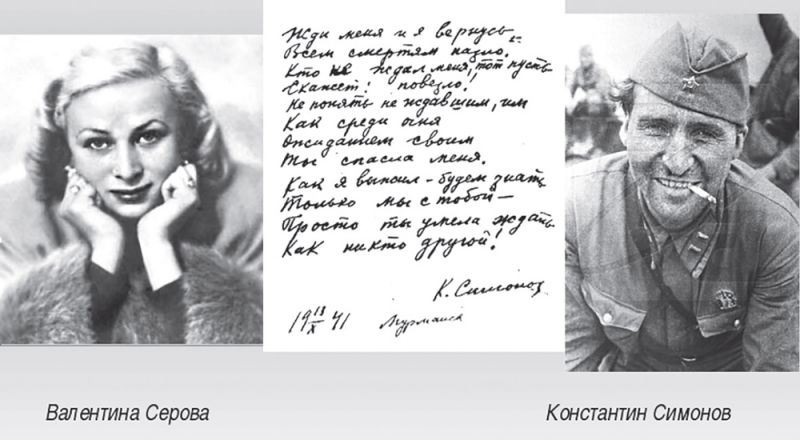 Жди меня и я вернусь
Всем смертям назло.
Кто не ждал меня, тот пусть
Скажет: повезло!
Не понять не ждавшим, им
Как среди огня
Ожиданием своим
Ты спасла меня.
Как я выжил – будем знать
Только мы с тобой –
Просто ты умела ждать
Как никто другой!
К. Симонов
19 13/X 41 Мурманск
Валентина Серова
Константин Симонов